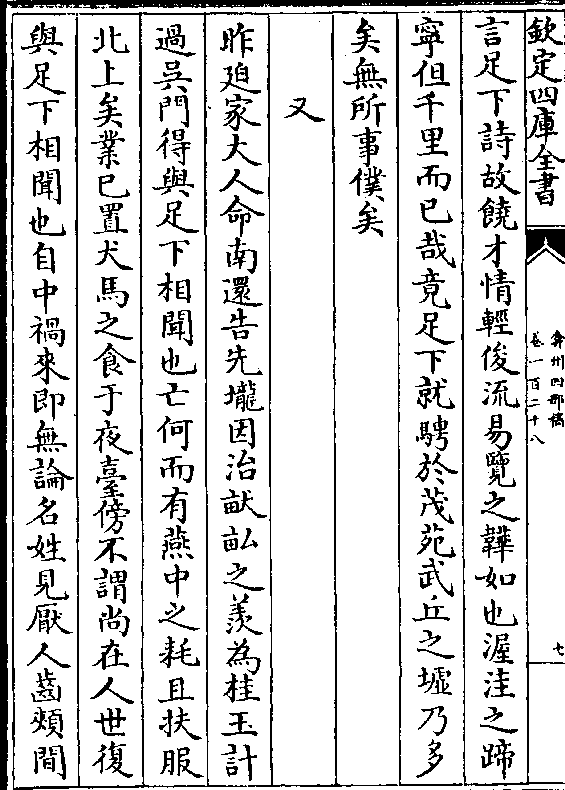 欽定四庫全書
弇州四部稿
卷一百二十八
七
言足下詩故饒才情輕俊流易覽之韡如也渥洼之蹄
寧但千里而已哉竟足下就騁於茂苑武丘之墟乃多
矣無所事僕矣
又
昨廹家大人命南還告先壠因治畎畆之羨為桂玉計
過吳門得與足下相聞也亡何而有燕中之耗且扶服
北上矣業已置犬馬之食于夜臺傍不謂尚在人世復
與足下相聞也自中禍來即無論名姓見厭人齒頰間